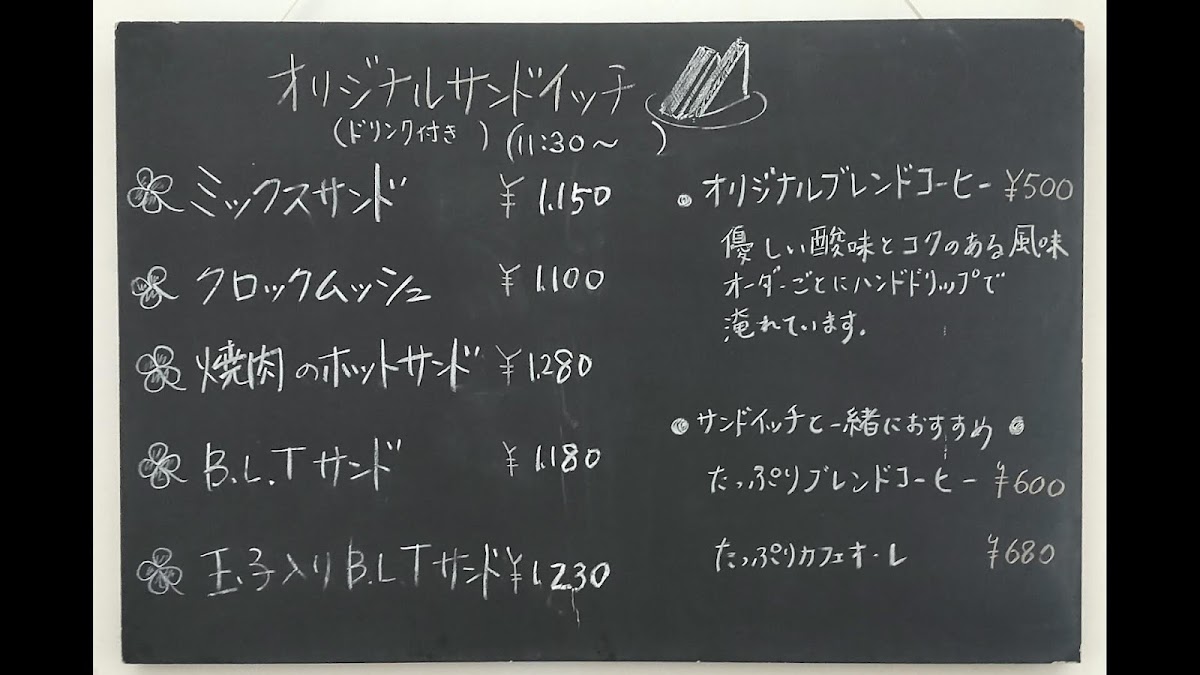 オリジナルサンドイッチ
(ドリンク付き ) (11:30～ )
ミックスサンド ¥1.150
クロックムッシュ ¥1.100
焼肉のホットサンド ¥1.280
B.L.Tサンド ¥1.180
玉子入りB.L.Tサンド ¥1.230
• オリジナルブレンドコーヒー ¥500
優しい酸味とコクのある風味
オーダーごとにハンドドリップで
淹れています。
• サンドイッチと一緒におすすめ •
たっぷりブレンドコーヒー ¥600
たっぷりカフェオーレ ¥680